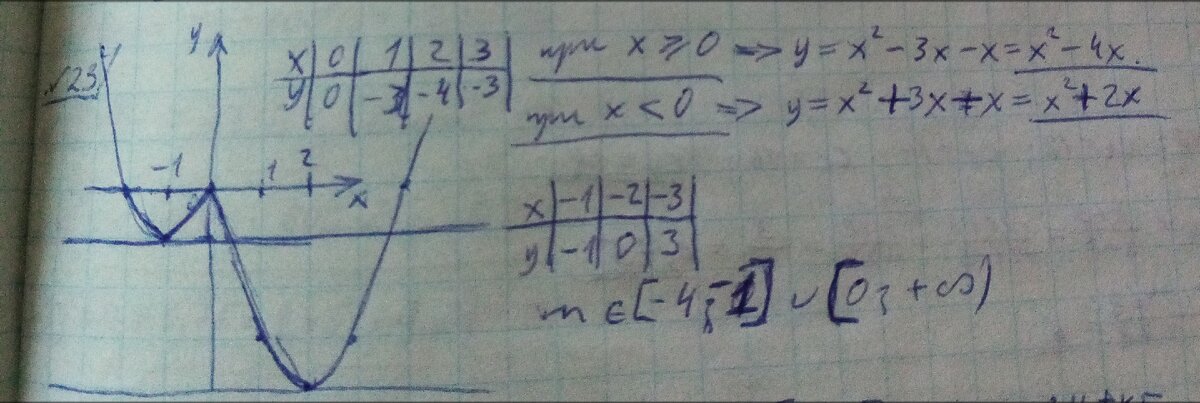 №23
y
x | 0 | 1 | 2 | 3
y | 0 | -3 | -4 | -3
при x ⩾ 0 => y = x² - 3x - x = x² - 4x.
при x < 0 => y = x² + 3x - x = x² + 2x
-1 1 2
x
x | -1 | -2 | -3
y | -1 | 0 | 3
m ∈ [-4; -1] ∪ [0; +∞)